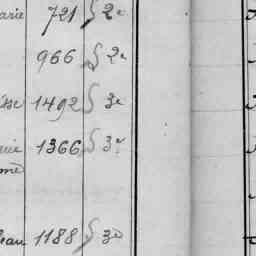 arie 721 § 2e
966 § 2e
isse 1492 § 3e
rie 1366 § 3e
mé
ean 1188 § 3e